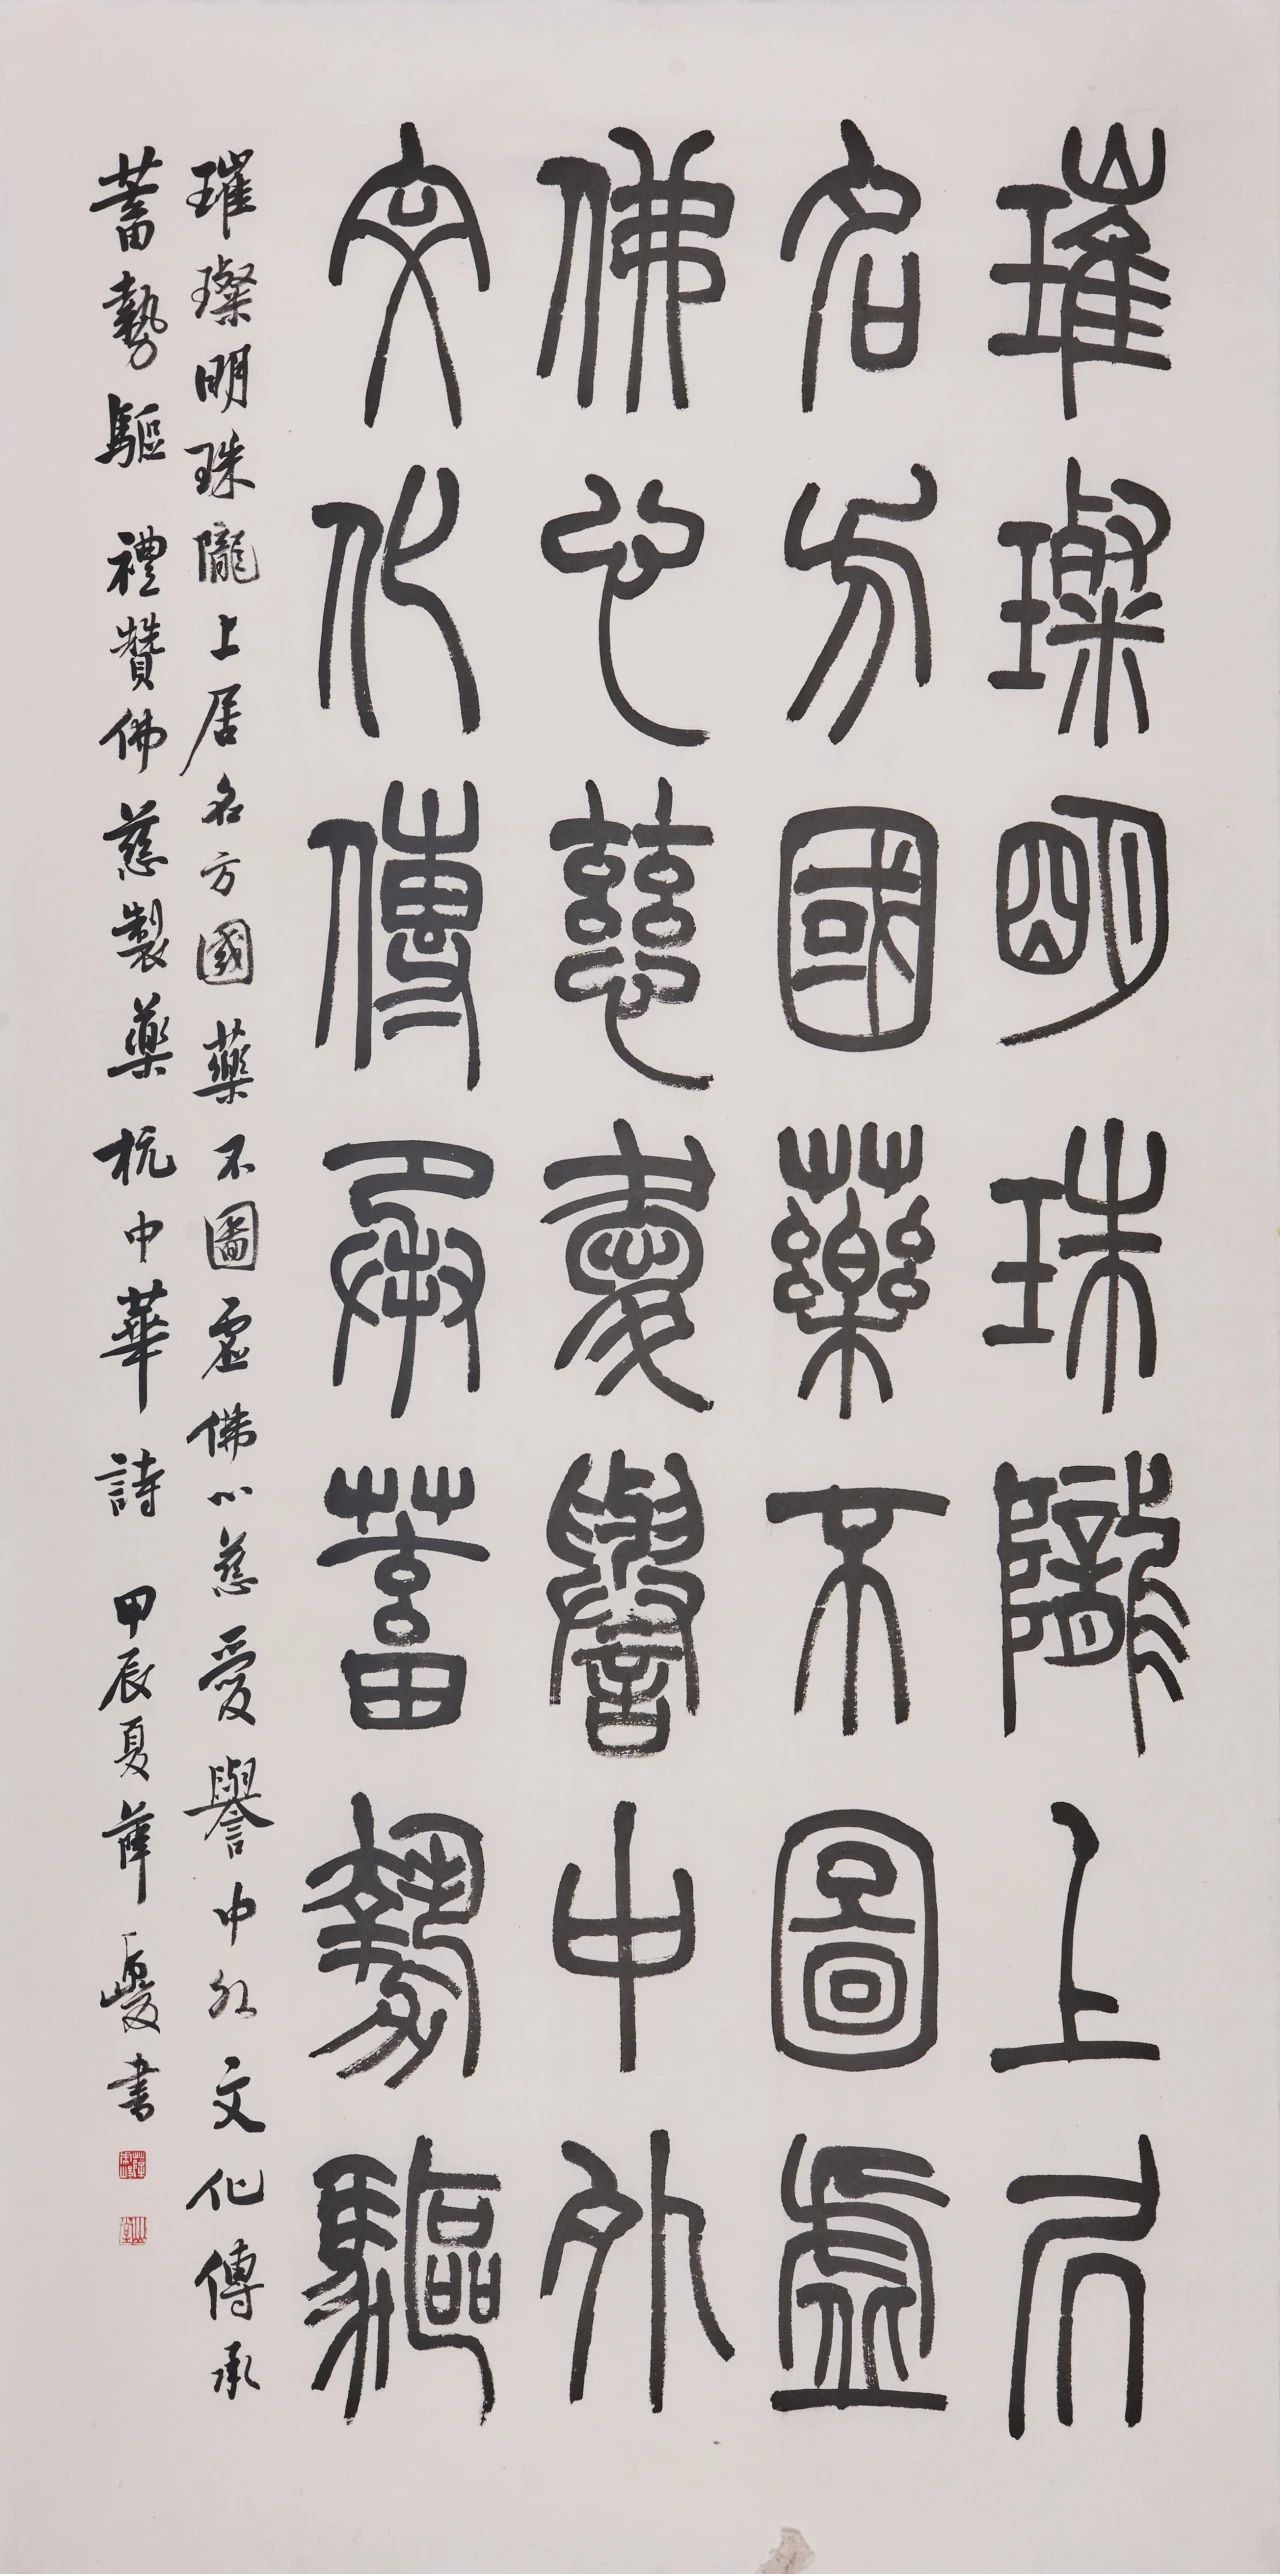 璀璨明珠隴上居
名方國藥不圖虛
佛心慈愛譽中外
文化傳承蓄勢驅
璀璨明珠隴上居名方國藥不圖虛佛心慈愛譽中外文化傳承
蓄勢驅 禮贊佛慈製藥 杭中華詩 甲辰夏薛書